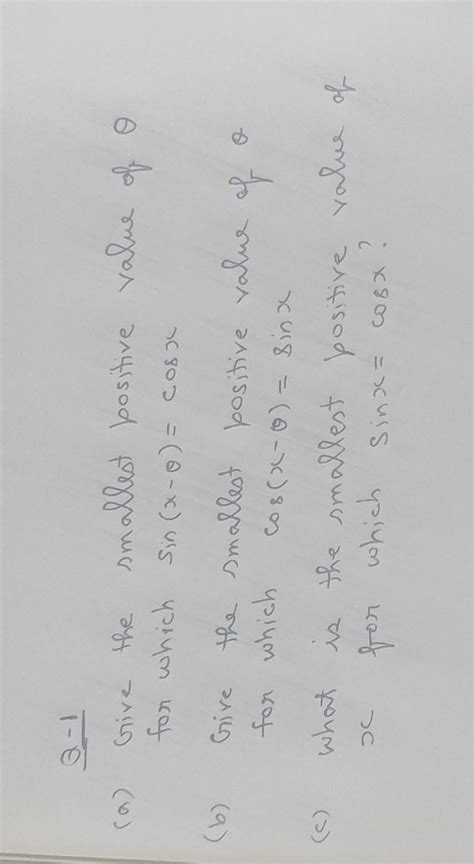 Q-1
(a) Give the smallest positive value of θ
for which sin(x-θ) = cosx
(b) Give the smallest positive value of θ
for which cos(x-θ) = sinx
(c) what is the smallest positive value of
x for which sinx = cosx?